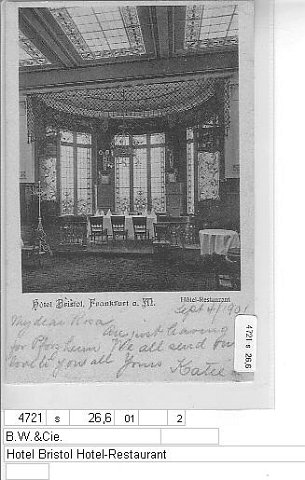 Hotel Bristol, Frankfurt a. M.
Hôtel-Restaurant
Sept 4/1901
My dear Rosa
are just leaving
for Pforzheim. We all send our
love to you all Yours
Katie
4721 s 26,6
4721 s 26,6 01 2
B.W.&Cie.
Hotel Bristol Hotel-Restaurant